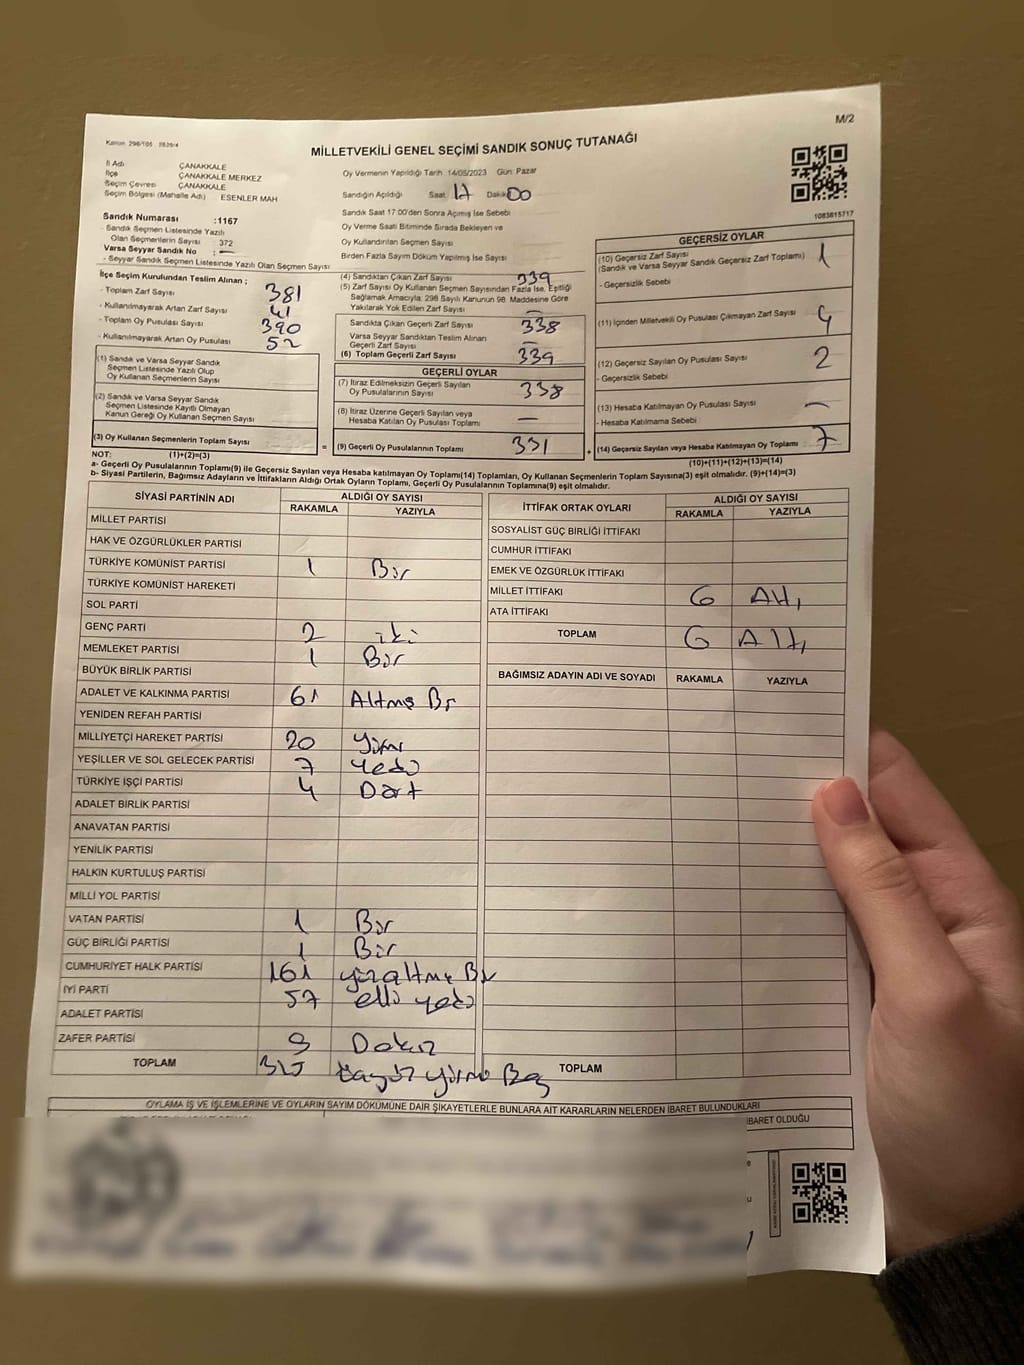 M/2
Kanun: 298/105 2839/4
MİLLETVEKİLİ GENEL SEÇİMİ SANDIK SONUÇ TUTANAĞI
İl Adı ÇANAKKALE
İlçe ÇANAKKALE MERKEZ
Seçim Çevresi ÇANAKKALE
Seçim Bölgesi (Mahalle Adı) ESENLER MAH
Oy Vermenin Yapıldığı Tarih 14/05/2023 Gün: Pazar
Sandığın Açıldığı Saat 17 Dakika 00
Sandık Saat 17:00'den Sonra Açılmış İse Sebebi
Oy Verme Saati Bitiminde Sırada Bekleyen ve
Oy Kullandırılan Seçmen Sayısı
Birden Fazla Sayım Döküm Yapılmış İse Sayısı
1083615717
Sandık Numarası :1167
- Sandık Seçmen Listesinde Yazılı
Olan Seçmenlerin Sayısı : 372
Varsa Seyyar Sandık No : —
- Seyyar Sandık Seçmen Listesinde Yazılı Olan Seçmen Sayısı
İlçe Seçim Kurulundan Teslim Alınan ;
- Toplam Zarf Sayısı 381
- Kullanılmayarak Artan Zarf Sayısı 41
- Toplam Oy Pusulası Sayısı 390
- Kullanılmayarak Artan Oy Pusulası 52
(1) Sandık ve Varsa Seyyar Sandık
Seçmen Listesinde Yazılı Olup
Oy Kullanan Seçmenlerin Sayısı
(2) Sandık ve Varsa Seyyar Sandık
Seçmen Listesinde Kayıtlı Olmayan
Kanun Gereği Oy Kullanan Seçmen Sayısı
(3) Oy Kullanan Seçmenlerin Toplam Sayısı
(4) Sandıktan Çıkan Zarf Sayısı 339
(5) Zarf Sayısı Oy Kullanan Seçmen Sayısından Fazla İse, Eşitliği
Sağlamak Amacıyla; 298 Sayılı Kanunun 98. Maddesine Göre
Yakılarak Yok Edilen Zarf Sayısı —
Sandıkta Çıkan Geçerli Zarf Sayısı 338
Varsa Seyyar Sandıktan Teslim Alınan
Geçerli Zarf Sayısı —
(6) Toplam Geçerli Zarf Sayısı 339
GEÇERLİ OYLAR
(7) İtiraz Edilmeksizin Geçerli Sayılan
Oy Pusulalarının Sayısı 338
(8) İtiraz Üzerine Geçerli Sayılan veya
Hesaba Katılan Oy Pusulaları Toplamı —
= (9) Geçerli Oy Pusulalarının Toplamı 331
GEÇERSİZ OYLAR
(10) Geçersiz Zarf Sayısı
(Sandık ve Varsa Seyyar Sandık Geçersiz Zarf Toplamı) 1
- Geçersizlik Sebebi
(11) İçinden Milletvekili Oy Pusulası Çıkmayan Zarf Sayısı 4
(12) Geçersiz Sayılan Oy Pusulası Sayısı 2
- Geçersizlik Sebebi
(13) Hesaba Katılmayan Oy Pusulası Sayısı —
- Hesaba Katılmama Sebebi
+ (14) Geçersiz Sayılan veya Hesaba Katılmayan Oy Toplamı 7
NOT: (1)+(2)=(3) (10)+(11)+(12)+(13)=(14)
a- Geçerli Oy Pusulalarının Toplamı(9) ile Geçersiz Sayılan veya Hesaba katılmayan Oy Toplamı(14) Toplamları, Oy Kullanan Seçmenlerin Toplam Sayısına(3) eşit olmalıdır. (9)+(14)=(3)
b- Siyasi Partilerin, Bağımsız Adayların ve İttifakların Aldığı Ortak Oyların Toplamı, Geçerli Oy Pusulalarının Toplamına(9) eşit olmalıdır.
SİYASİ PARTİNİN ADI ALDIĞI OY SAYISI
RAKAMLA YAZIYLA
MİLLET PARTİSİ
HAK VE ÖZGÜRLÜKLER PARTİSİ
TÜRKİYE KOMÜNİST PARTİSİ 1 Bir
TÜRKİYE KOMÜNİST HAREKETİ
SOL PARTİ
GENÇ PARTİ 2 iki
MEMLEKET PARTİSİ 1 Bir
BÜYÜK BİRLİK PARTİSİ
ADALET VE KALKINMA PARTİSİ 61 Altmış Bir
YENİDEN REFAH PARTİSİ
MİLLİYETÇİ HAREKET PARTİSİ 20 Yirmi
YEŞİLLER VE SOL GELECEK PARTİSİ 7 Yedi
TÜRKİYE İŞÇİ PARTİSİ 4 Dört
ADALET BİRLİK PARTİSİ
ANAVATAN PARTİSİ
YENİLİK PARTİSİ
HALKIN KURTULUŞ PARTİSİ
MİLLİ YOL PARTİSİ
VATAN PARTİSİ 1 Bir
GÜÇ BİRLİĞİ PARTİSİ 1 Bir
CUMHURİYET HALK PARTİSİ 161 yüzaltmış Bir
İYİ PARTİ 57 elli yedi
ADALET PARTİSİ
ZAFER PARTİSİ 9 Dokuz
TOPLAM 325 üçyüz yirmi Beş
İTTİFAK ORTAK OYLARI ALDIĞI OY SAYISI
RAKAMLA YAZIYLA
SOSYALİST GÜÇ BİRLİĞİ İTTİFAKI
CUMHUR İTTİFAKI
EMEK VE ÖZGÜRLÜK İTTİFAKI
MİLLET İTTİFAKI 6 Altı
ATA İTTİFAKI
TOPLAM 6 Altı
BAĞIMSIZ ADAYIN ADI VE SOYADI RAKAMLA YAZIYLA
TOPLAM
OYLAMA İŞ VE İŞLEMLERİNE VE OYLARIN SAYIM DÖKÜMÜNE DAİR ŞİKAYETLERLE BUNLARA AİT KARARLARIN NELERDEN İBARET BULUNDUKLARI
İBARET OLDUĞU